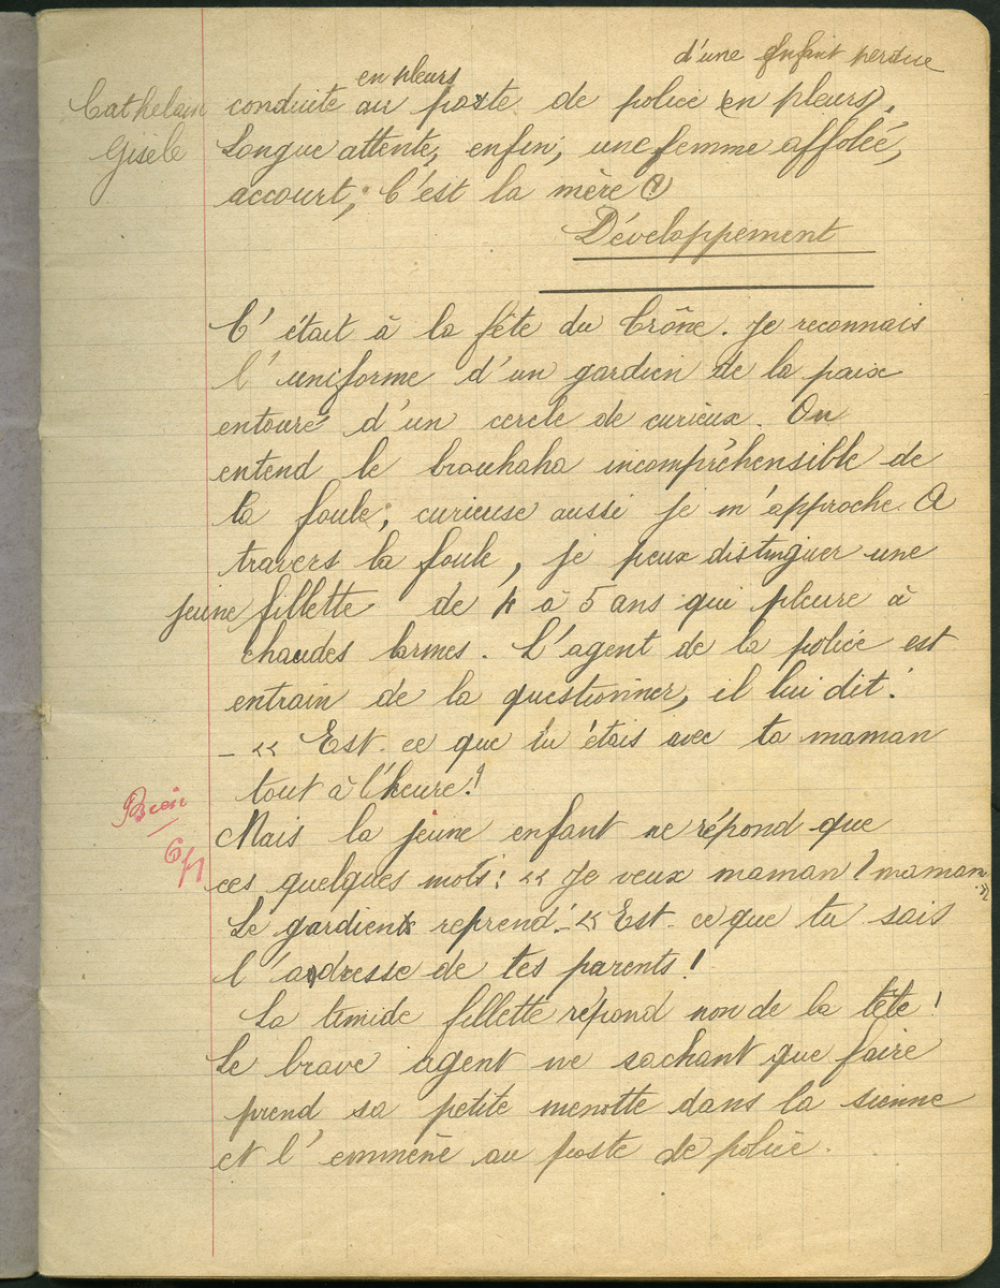 d'une enfant perdue
en pleurs
Cathelain conduite au poste de police (en pleurs).
Gisèle Longue attente, enfin, une femme affolée,
accourt, C'est la mère
Développement
C'était à la fête du Trône. Je reconnais
l'uniforme d'un gardien de la paix
entouré d'un cercle de curieux. On
entend le brouhaha incompréhensible de
la foule, curieuse aussi je m'approche. A
travers la foule, je peux distinguer une
jeune fillette de 4 à 5 ans qui pleure à
chaudes larmes. L'agent de la police est
entrain de la questionner, il lui dit:
- « Est-ce que tu étais avec ta maman
tout à l'heure!
Mais la jeune enfant ne répond que
Bien
ces quelques mots: « Je veux maman! maman »
6/1
Le gardien reprend: - « Est-ce que tu sais
l'adresse de tes parents!
La timide fillette répond non de la tête!
Le brave agent ne sachant que faire
prend sa petite menotte dans la sienne
et l'emmène au poste de police.